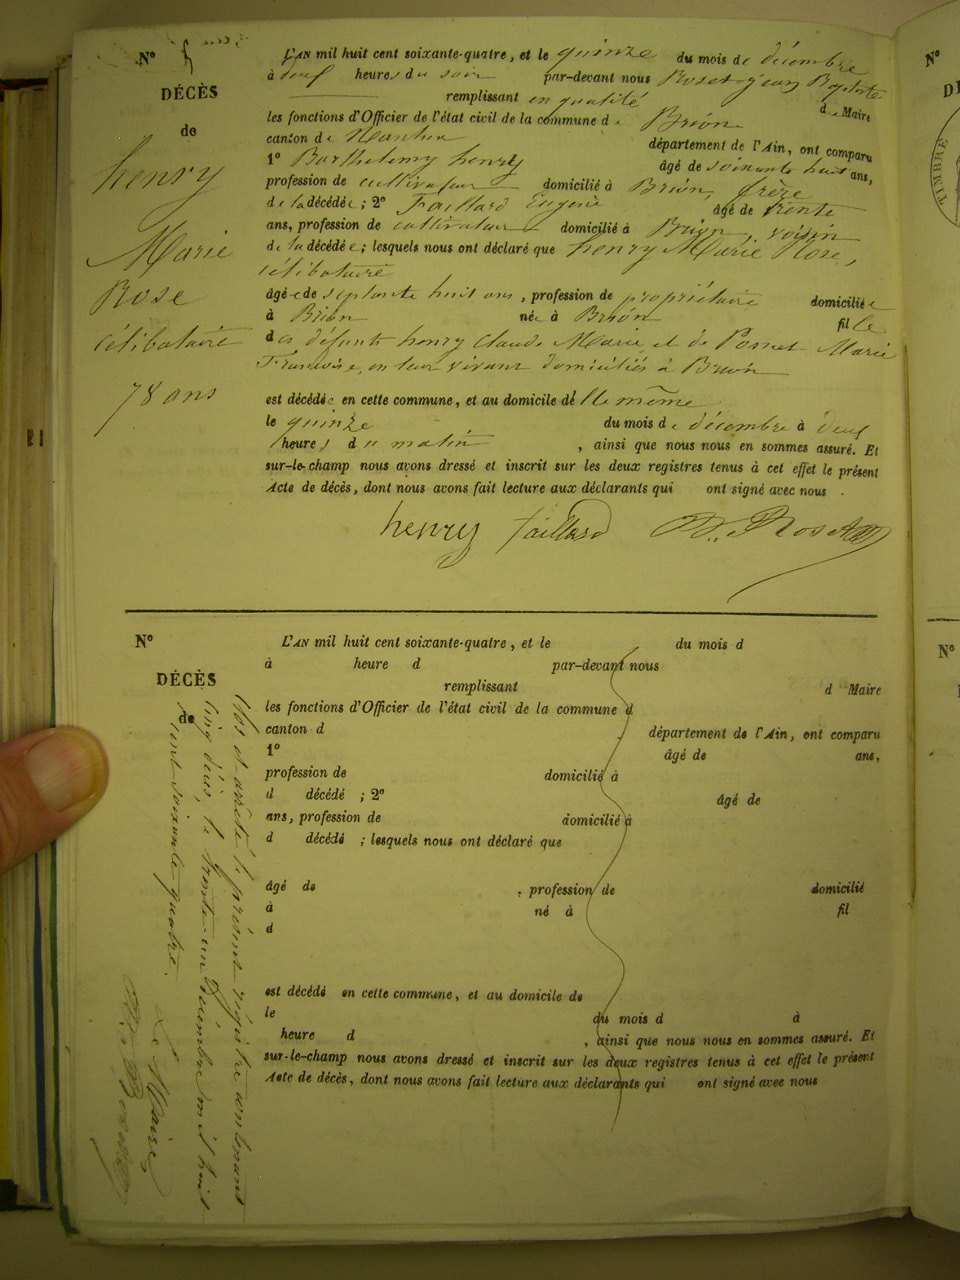 N° 5
DÉCÈS
de
henry
Marie
Rose
célibataire
78 ans
L'AN mil huit cent soixante-quatre, et le quinze du mois de décembre
à neuf heures du soir par-devant nous Roset jean Baptiste
remplissant en qualité de Maire
les fonctions d'Officier de l'état civil de la commune de Brion
canton de Nantua département de l'Ain, ont comparu
1° Barthelemy henry âgé de soixante huit ans,
profession de cultivateur domicilié à Brion, frère
de la décédée ; 2° Taillard Eugene âgé de trente
ans, profession de cultivateur domicilié à Brion, voisin
de la décédée ; lesquels nous ont déclaré que henry Marie Rose,
célibataire
âgée de septante huit ans, profession de propriétaire domiciliée
à Brion née à Brion fille
des défunts henry Claude Marie et de Marie
Francoise, en leur vivant domiciliés à Brion
est décédée en cette commune, et au domicile de lle même
le quinze du mois de décembre à
heures du matin, ainsi que nous nous en sommes assuré. Et
sur-le-champ nous avons dressé et inscrit sur les deux registres tenus à cet effet le présent
Acte de décès, dont nous avons fait lecture aux déclarants qui ont signé avec nous.
henry taillard Roset
N°
DÉCÈS
de
L'AN mil huit cent soixante-quatre, et le du mois d
à heure d par-devant nous
remplissant d Maire
les fonctions d'Officier de l'état civil de la commune d
canton d , département de l'Ain, ont comparu
1° âgé de ans,
profession de domicilié à
d décédé ; 2° âgé de
ans, profession de domicilié à
d décédé ; lesquels nous ont déclaré que
âgé de , profession de domicilié
à né à fil
d
est décédé en cette commune, et au domicile de
le du mois d à
heure d , ainsi que nous nous en sommes assuré. Et
sur-le-champ nous avons dressé et inscrit sur les deux registres tenus à cet effet le présent
Acte de décès, dont nous avons fait lecture aux déclarants qui ont signé avec nous
Clos et arrêté le présent régistre contenant
cinq décès, le trente-un Décembre mil huit
cent soixante quatre.
Le Maire
N°
TIMBRE
N°